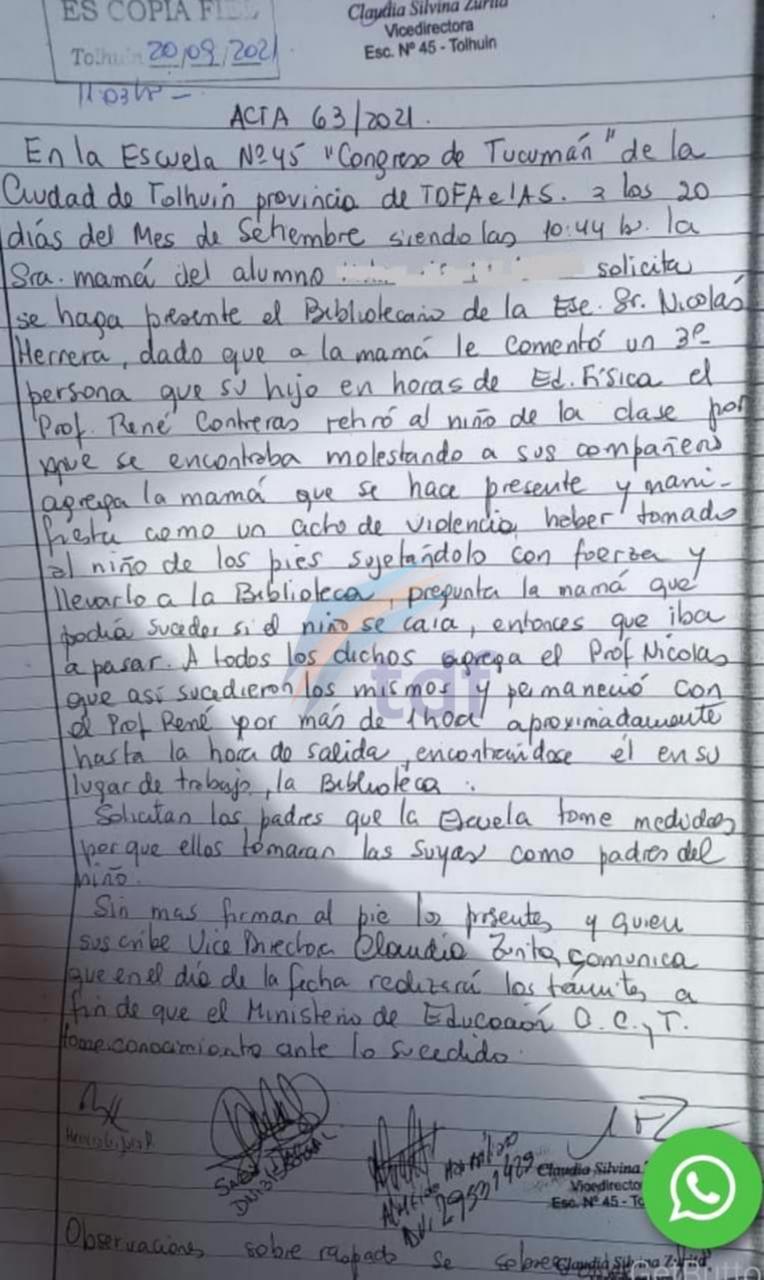 ES COPIA FIEL
Tolhuin 20/09/2021
Claudia Silvina Zurita
Vicedirectora
Esc. Nº 45 - Tolhuin
11:03hr -
ACTA 63/2021.
En la Escuela Nº45 "Congreso de Tucumán" de la
Ciudad de Tolhuin provincia de TDFAeIAS. a los 20
días del Mes de Setiembre siendo las 10:44 hs. la
Sra. mamá del alumno solicita
se haga presente el Bibliotecario de la Esc. Sr. Nicolás
Herrera, dado que a la mamá le comentó un 3º
persona que su hijo en horas de Ed. Física el
Prof. René Contreras retiró al niño de la clase por
que se encontraba molestando a sus compañeros
agrega la mamá que se hace presente y mani-
fiesta como un acto de violencia haber tomado
al niño de los pies sujetándolo con fuerza y
llevarlo a la Biblioteca, pregunta la mamá que
podía suceder si el niño se caia, entonces que iba
a pasar. A todos los dichos agrega el Prof Nicolas
que así sucedieron los mismos y permaneció con
el Prof René por más de 1 hora aproximadamente
hasta la hora de salida, encontrandose él en su
lugar de trabajo, la Biblioteca.
Solicitan los padres que la Escuela tome medidas
porque ellos tomaran las suyas como padres del
niño.
Sin mas firman al pie los presentes y quien
suscribe Vice Directora Claudia Zurita, comunica
que en el día de la fecha realizará los trámites a
fin de que el Ministerio de Educación O.C., y T.
tome conocimiento ante lo sucedido.
29531429
Claudia Silvina
Vicedirecto
Esc. Nº 45 - To
Observaciones sobre raspado se sobre
Claudia Silvina Zurita
tdf
GetBritto